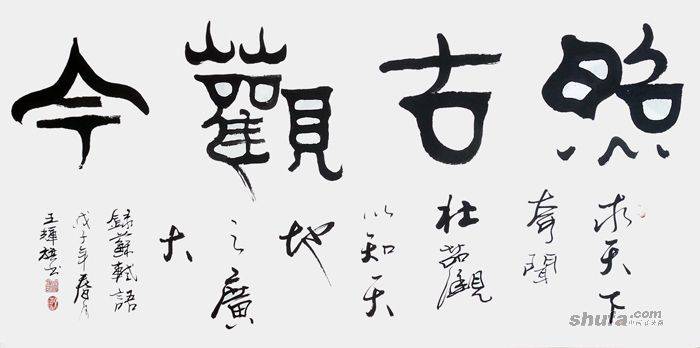 照古觀今
求天下
奇聞
壯觀
以知天
地
之廣
大
錄蘇軾語
戊子年春月
王
書
shufa.com